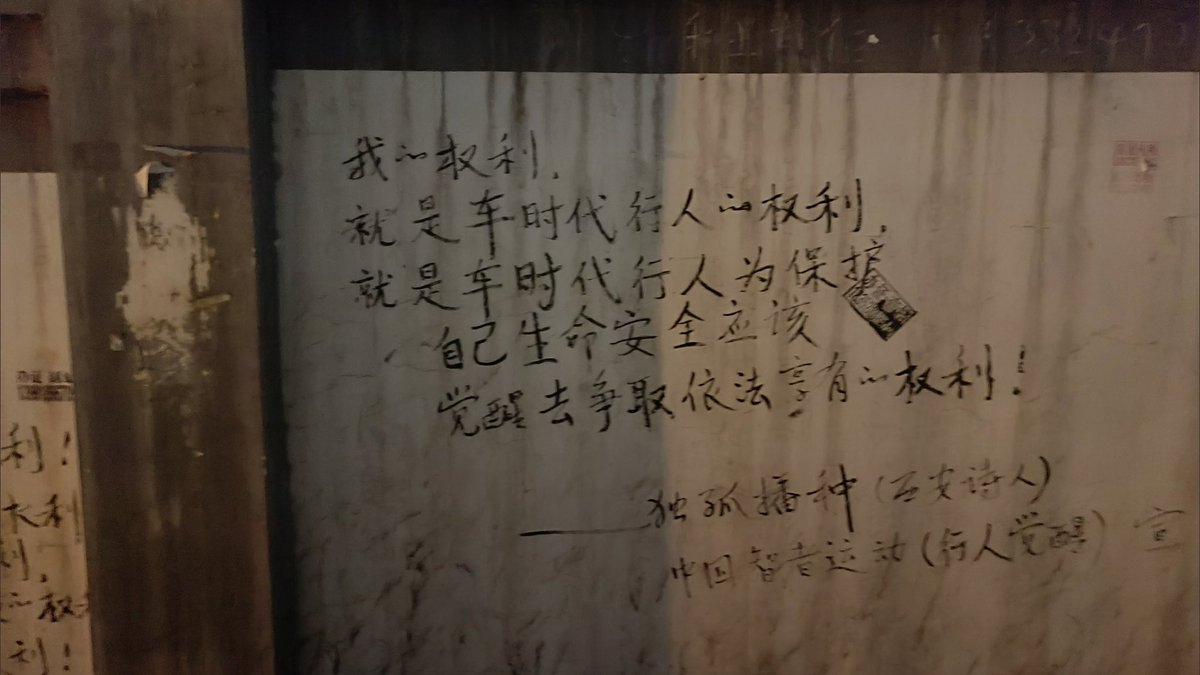 我的权利.
就是车时代行人的权利,
就是车时代行人为保护
自己生命安全应该
觉醒去争取依法享有的权利!
——独孤播种(西安诗人)
中国智者运动(行人觉醒)宣
利!
利
利,
的权
利!